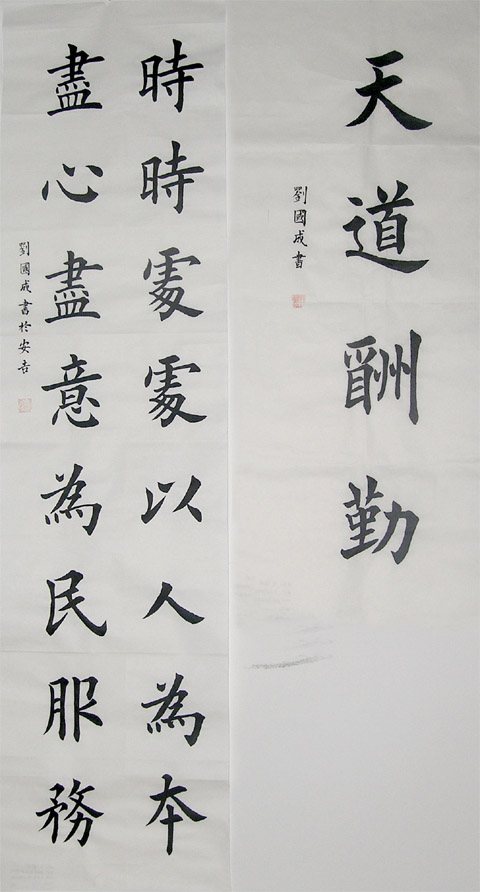 天道酬勤
劉國成書
時時處處以人為本
盡心盡意為民服務
劉國成書於安吉